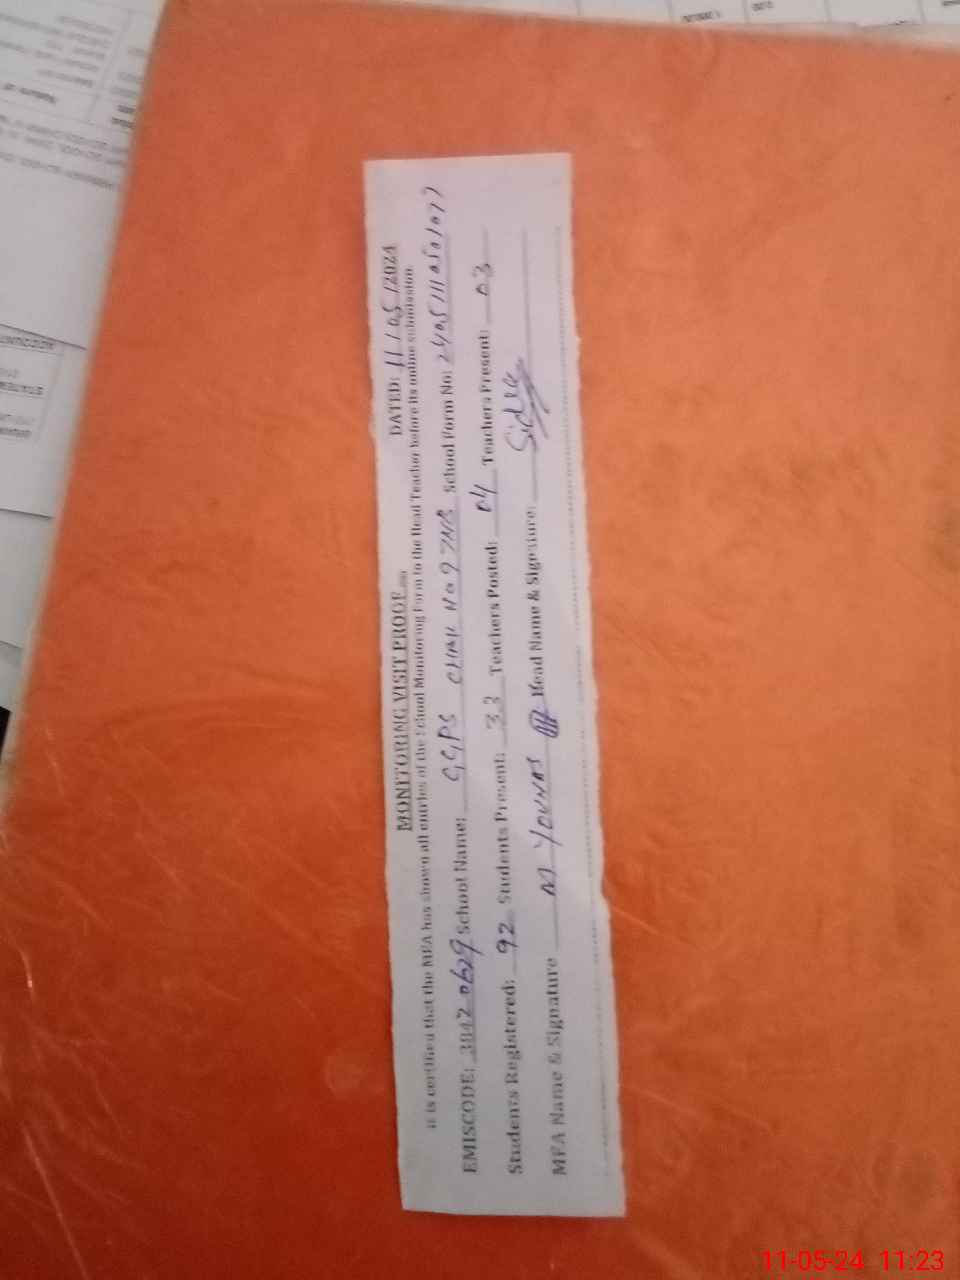 MONITORING VISIT PROOF
DATED: 11/05/2024
It is certified that the MEA has shown all entries of the School Monitoring Form to the Head Teacher before its online submission.
EMISCODE: 38420629 School Name: GGPS CHAK NO 97NB School Form No:
Students Registered: 92 Students Present: 33 Teachers Posted: 04 Teachers Present: 03
MEA Name & Signature M YOUNAS Head Name & Signature: Sidra
11-05-24 11:23